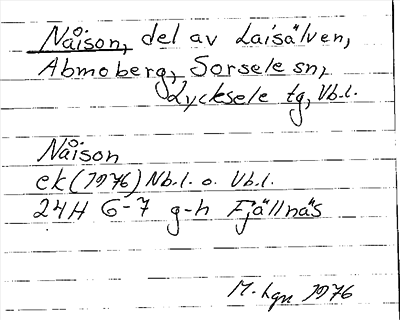 Nåison, del av Laisälven,
Abmoberg, Sorsele sn,
Lycksele tg, Vb.l.
Nåison
ek (1976) Nb.l. o. Vb.l.
24H 6-7 g-h Fjällnäs
M. Lgn 1976